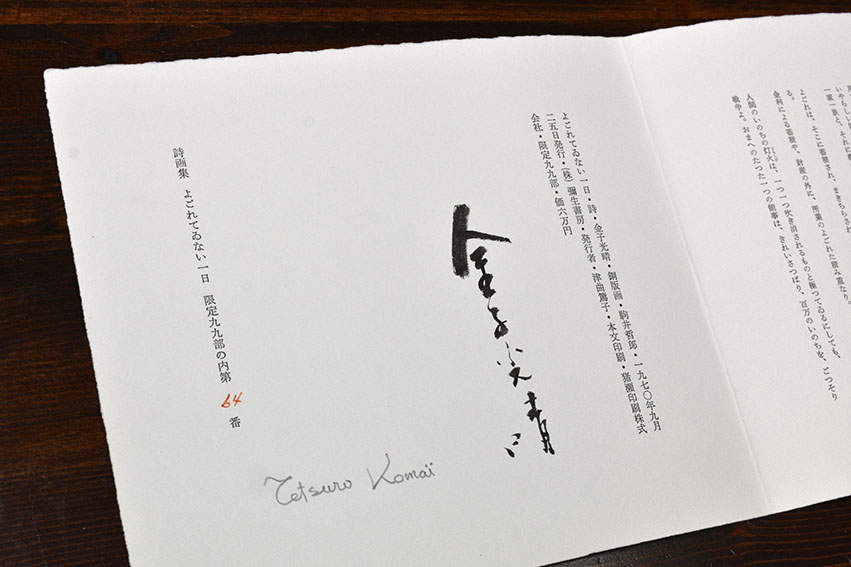 一家一族と、それに
いやらしい
よごれは、そこに蓄積され、まきちらされ
る。
金利による蓄積や、財産の外に、所業のよごれた積み重なり。
人間のいのちの灯火は、一つ一つ吹き消されるものと極つてゐるにしても、
戦争よ。おまへのたつた一つの能事は、きれいさつぱり、百万のいのちを、ごつそり
よごれてゐない一日・詩・金子光晴・銅版画・駒井哲郎・一九七〇年九月
二五日発行・(株)彌生書房・発行者・津曲篤子・本文印刷・猪瀬印刷株式
会社・限定九九部・価六万円
金子光晴
詩画集 よごれてゐない一日 限定九九部の内第 64 番
Tetsuro Komaï